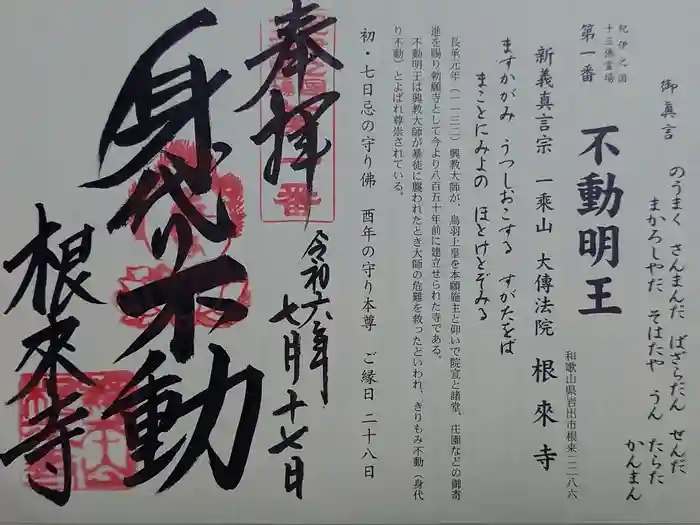 御真言
のうまく さんまんだ ばざらだん せんだ
まかろしやだ そはたや うん たらた
かんまん
紀伊之国
十三佛霊場
第一番
不動明王
和歌山県岩出市根来二二八六
新義真言宗 一乗山 大傳法院 根來寺
ますかがみ うつしおこする すがたをば
まことにみよの ほとけとぞみる
長承元年(一一三二)興教大師が、鳥羽上皇を本願施主と仰いで院宣と諸堂、庄園などの御寄
進を賜り勅願寺として今より八百五十年前に建立せられた寺である。
不動明王は興教大師が暴徒に襲われたとき大師の危難を救ったといわれ、きりもみ不動(身代
り不動)とよばれ尊崇されている。
初・七日忌の守り佛 酉年の守り本尊 ご縁日 二十八日
奉拝
令和六年
七月十七日
身代り不動
根來寺